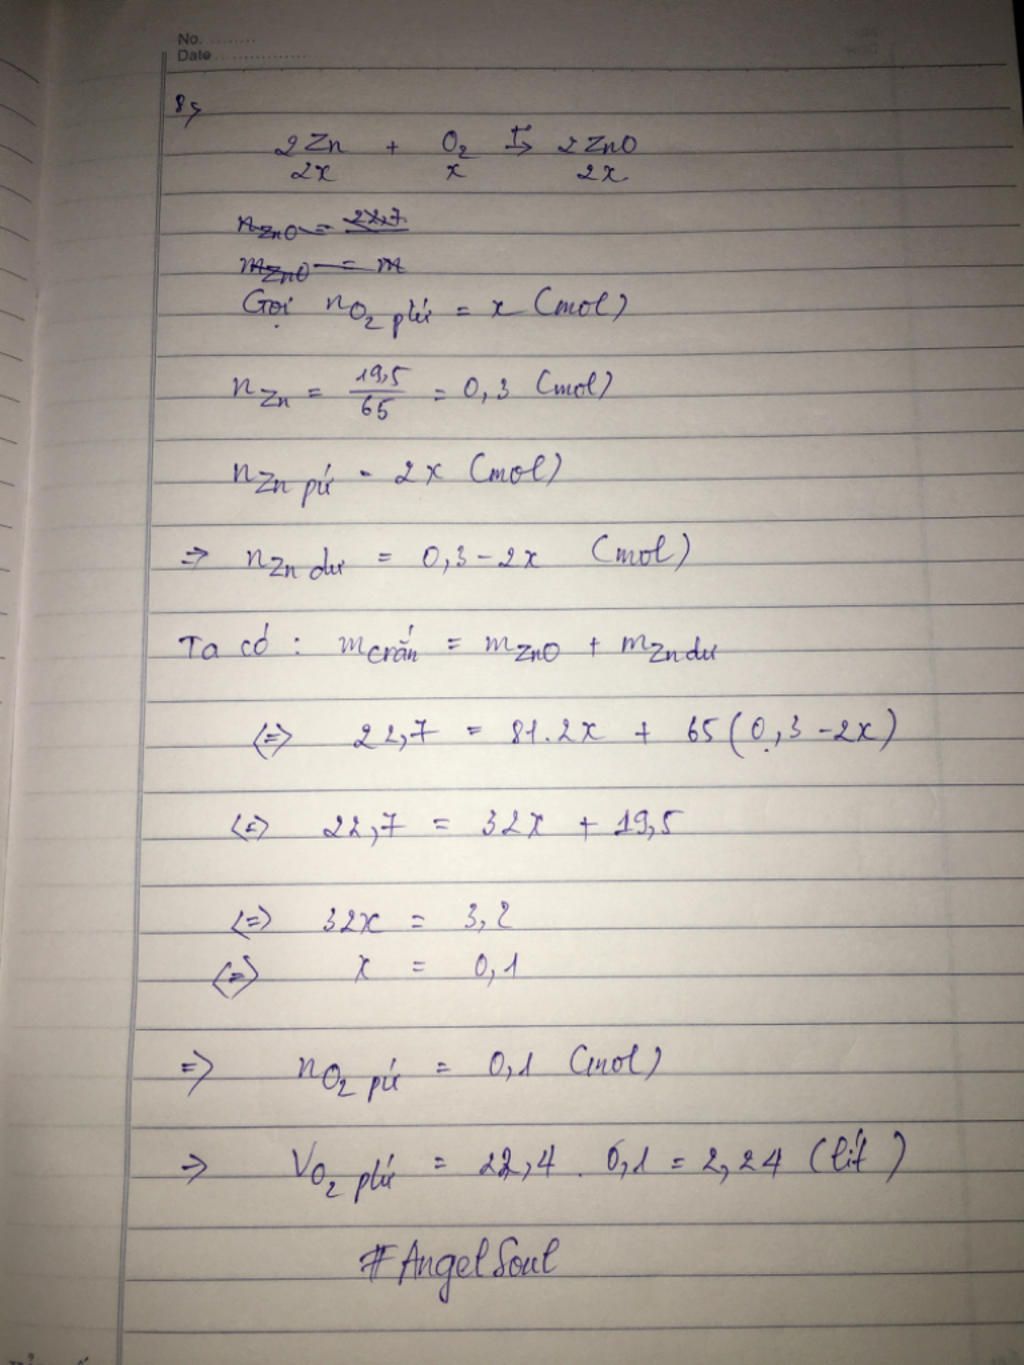 No. ........
Date ................
8,
2Zn + O₂ →(t°) 2ZnO
2x x 2x
~~n_ZnO = 22,7~~
~~m_ZnO = m~~
Gọi n_O₂ pứ = x (mol)
n_Zn = 19,5/65 = 0,3 (mol)
n_Zn pứ = 2x (mol)
=> n_Zn dư = 0,3 - 2x (mol)
Ta có : m_crắn = m_ZnO + m_Zn dư
(=) 22,7 = 81.2x + 65(0,3 - 2x)
(=) 22,7 = 32x + 19,5
(=) 32x = 3,2
(=) x = 0,1
=> n_O₂ pứ = 0,1 (mol)
=> V_O₂ pứ = 22,4 . 0,1 = 2,24 (lít)
#AngelSoul